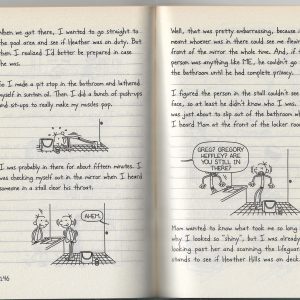 When we got there, I wanted to go straight to
the pool area and see if Heather was on duty. But
then I realized I'd better be prepared in case
she was.
So I made a pit stop in the bathroom and lathered
myself in suntan oil. Then I did a bunch of push-ups
and sit-ups to really make my muscles pop.
I was probably in there for about fifteen minutes. I
was checking myself out in the mirror when I heard
someone in a stall clear his throat.
AHEM.
196
Well, that was pretty embarrassing, because
meant whoever was in there could see me
front of the mirror the whole time. And, if
person was anything like ME, he couldn't go
the bathroom until he had complete privacy.
I figured the person in the stall couldn't see
face, so at least he didn't know who I was.
was just about to slip out of the bathroom wh
I heard Mom at the front of the locker roo
GREG? GREGORY
HEFFLEY? ARE
YOU STILL IN
THERE?
Mom wanted to know what took me so long
why I looked so "shiny", but I was already
looking past her and scanning the lifeguard
stands to see if Heather Hills was on deck.